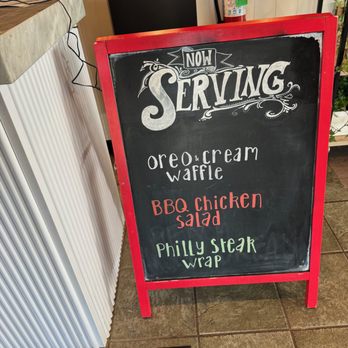 NOW
SERVING
oreo & cream
waffle
BBQ chicken
salad
Philly steak
wrap